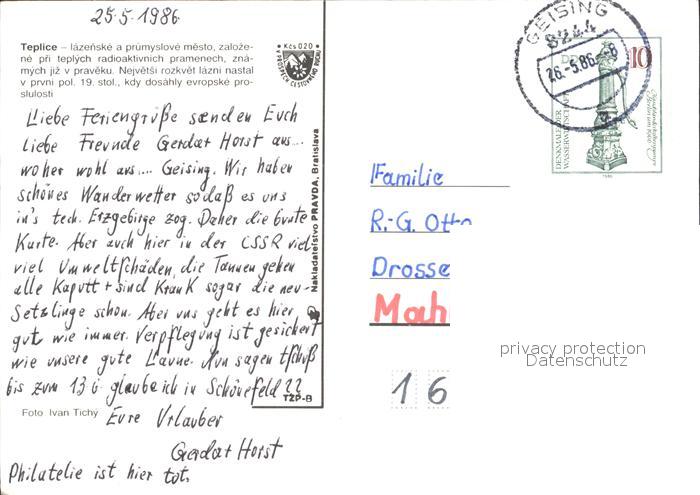 25.5.1986
Teplice – lázeňské a průmyslové město, založe-
né při teplých radioaktivních pramenech, zná-
mých již v pravěku. Největší rozkvět lázní nastal
v první pol. 19. stol., kdy dosáhly evropské pro-
slulosti
Kčs 0,20
Liebe Feriengrüße senden Euch
liebe Freunde Gerdat Horst aus...
woher wohl aus.... Geising. Wir haben
schönes Wanderwetter sodaß es uns
in's tech. Erzgebirge zog. Daher die bunte
Karte. Aber auch hier in der CSSR viel
viel Umweltschäden, die Tannen gehen
alle Kaputt + sind Krank sogar die neu-
Setzlinge schon. Aber uns geht es hier
gut wie immer. Verpflegung ist gesichert
wie unsere gute Laune. Nun sagen tschüß
bis zum 13.6 glaube ich in Schönefeld ??
Eure Urlauber
Gerdat Horst
Philatelie ist hier tot.
Foto Ivan Tichý
TZP-B
Nakladateľstvo PRAVDA, Bratislava
GEISING
8244
26.-5.86.-8
a
DDR
10
DENKMALE DER
WASSERWIRTSCHAFT
1986
Familie
R.-G. Otto
Drosse
Mah
16
privacy protection
Datenschutz